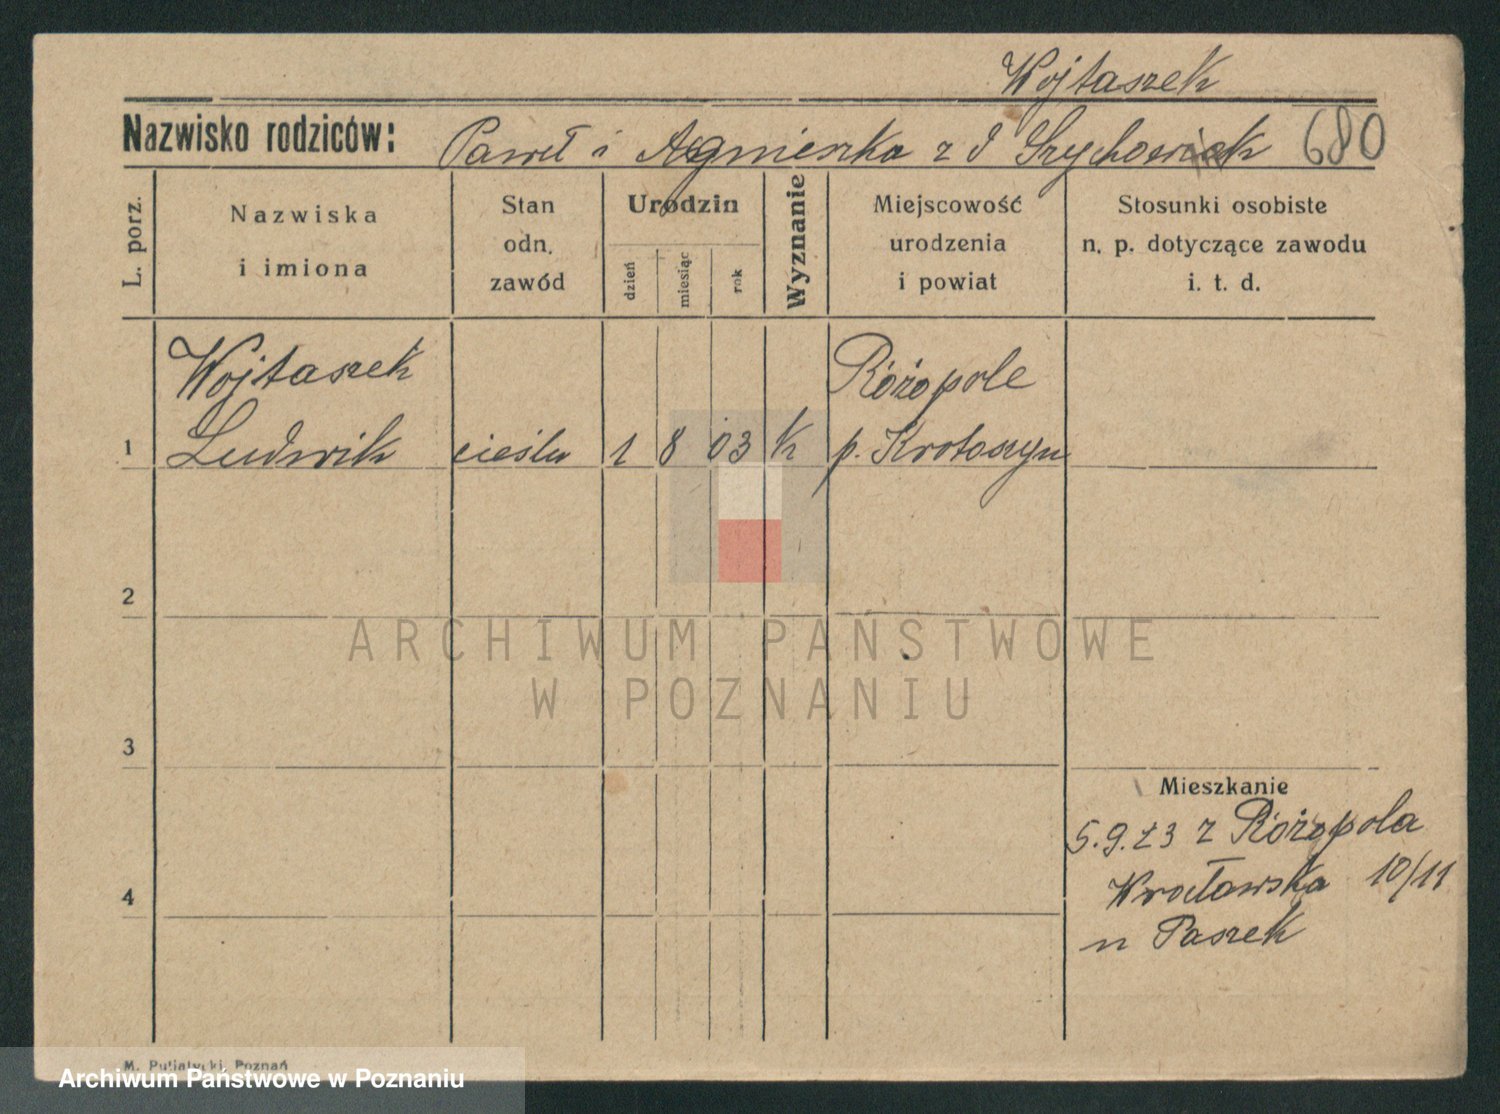 Wojtaszek
Nazwisko rodziców: Paweł i Agnieszka z d 680
L. porz.
Nazwiska i imiona
Stan odn. zawód
Urodzin
dzień
miesiąc
rok
Wyznanie
Miejscowość urodzenia i powiat
Stosunki osobiste n. p. dotyczące zawodu i. t. d.
Wojtaszek Różopole
1 Ludwik cieśla 1 8 03 k p. Krotoszyn
2
ARCHIWUM PAŃSTWOWE
W POZNANIU
3
Mieszkanie
5.9.23 z Różopola
4 Wrocławska 10/11
u Paszek
M. Putiatycki, Poznań
Archiwum Państwowe w Poznaniu